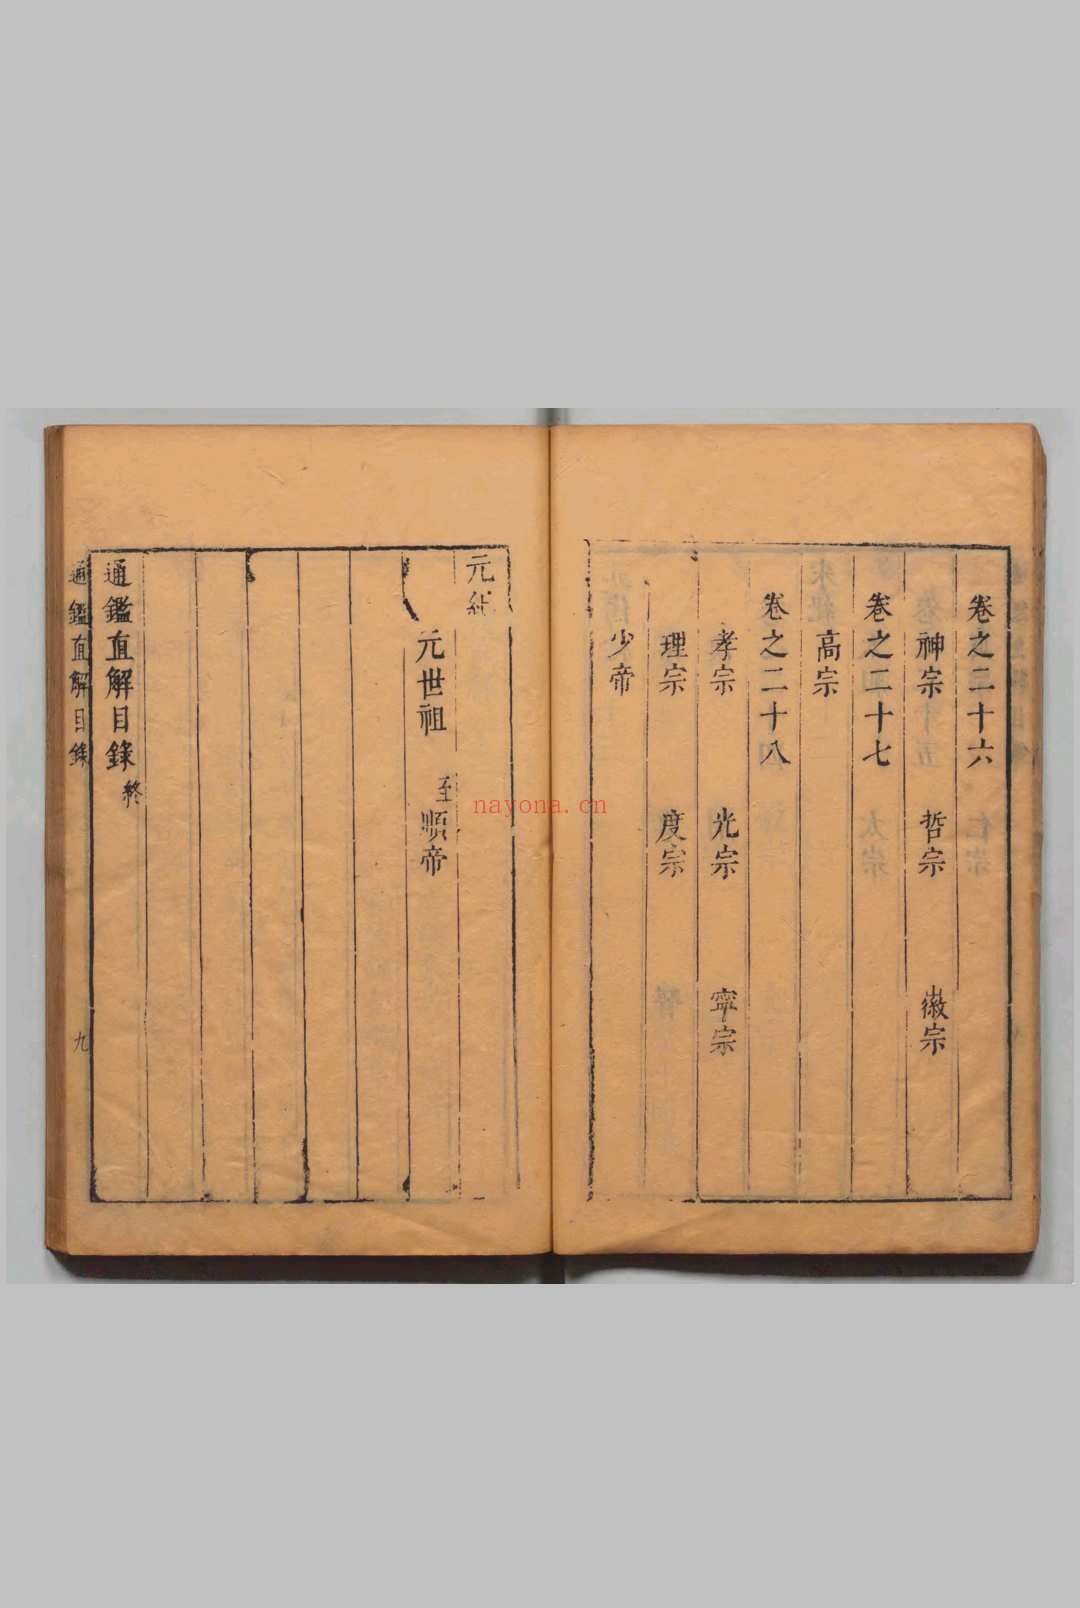 卷之二十六
神宗 哲宗 徽宗
卷之二十七
高宗
卷之二十八
孝宗 光宗 寧宗
理宗 度宗
少帝
元紀
元世祖 至順帝
通鑑直解目錄終
通鑑直解目錄 九
nayona.cn